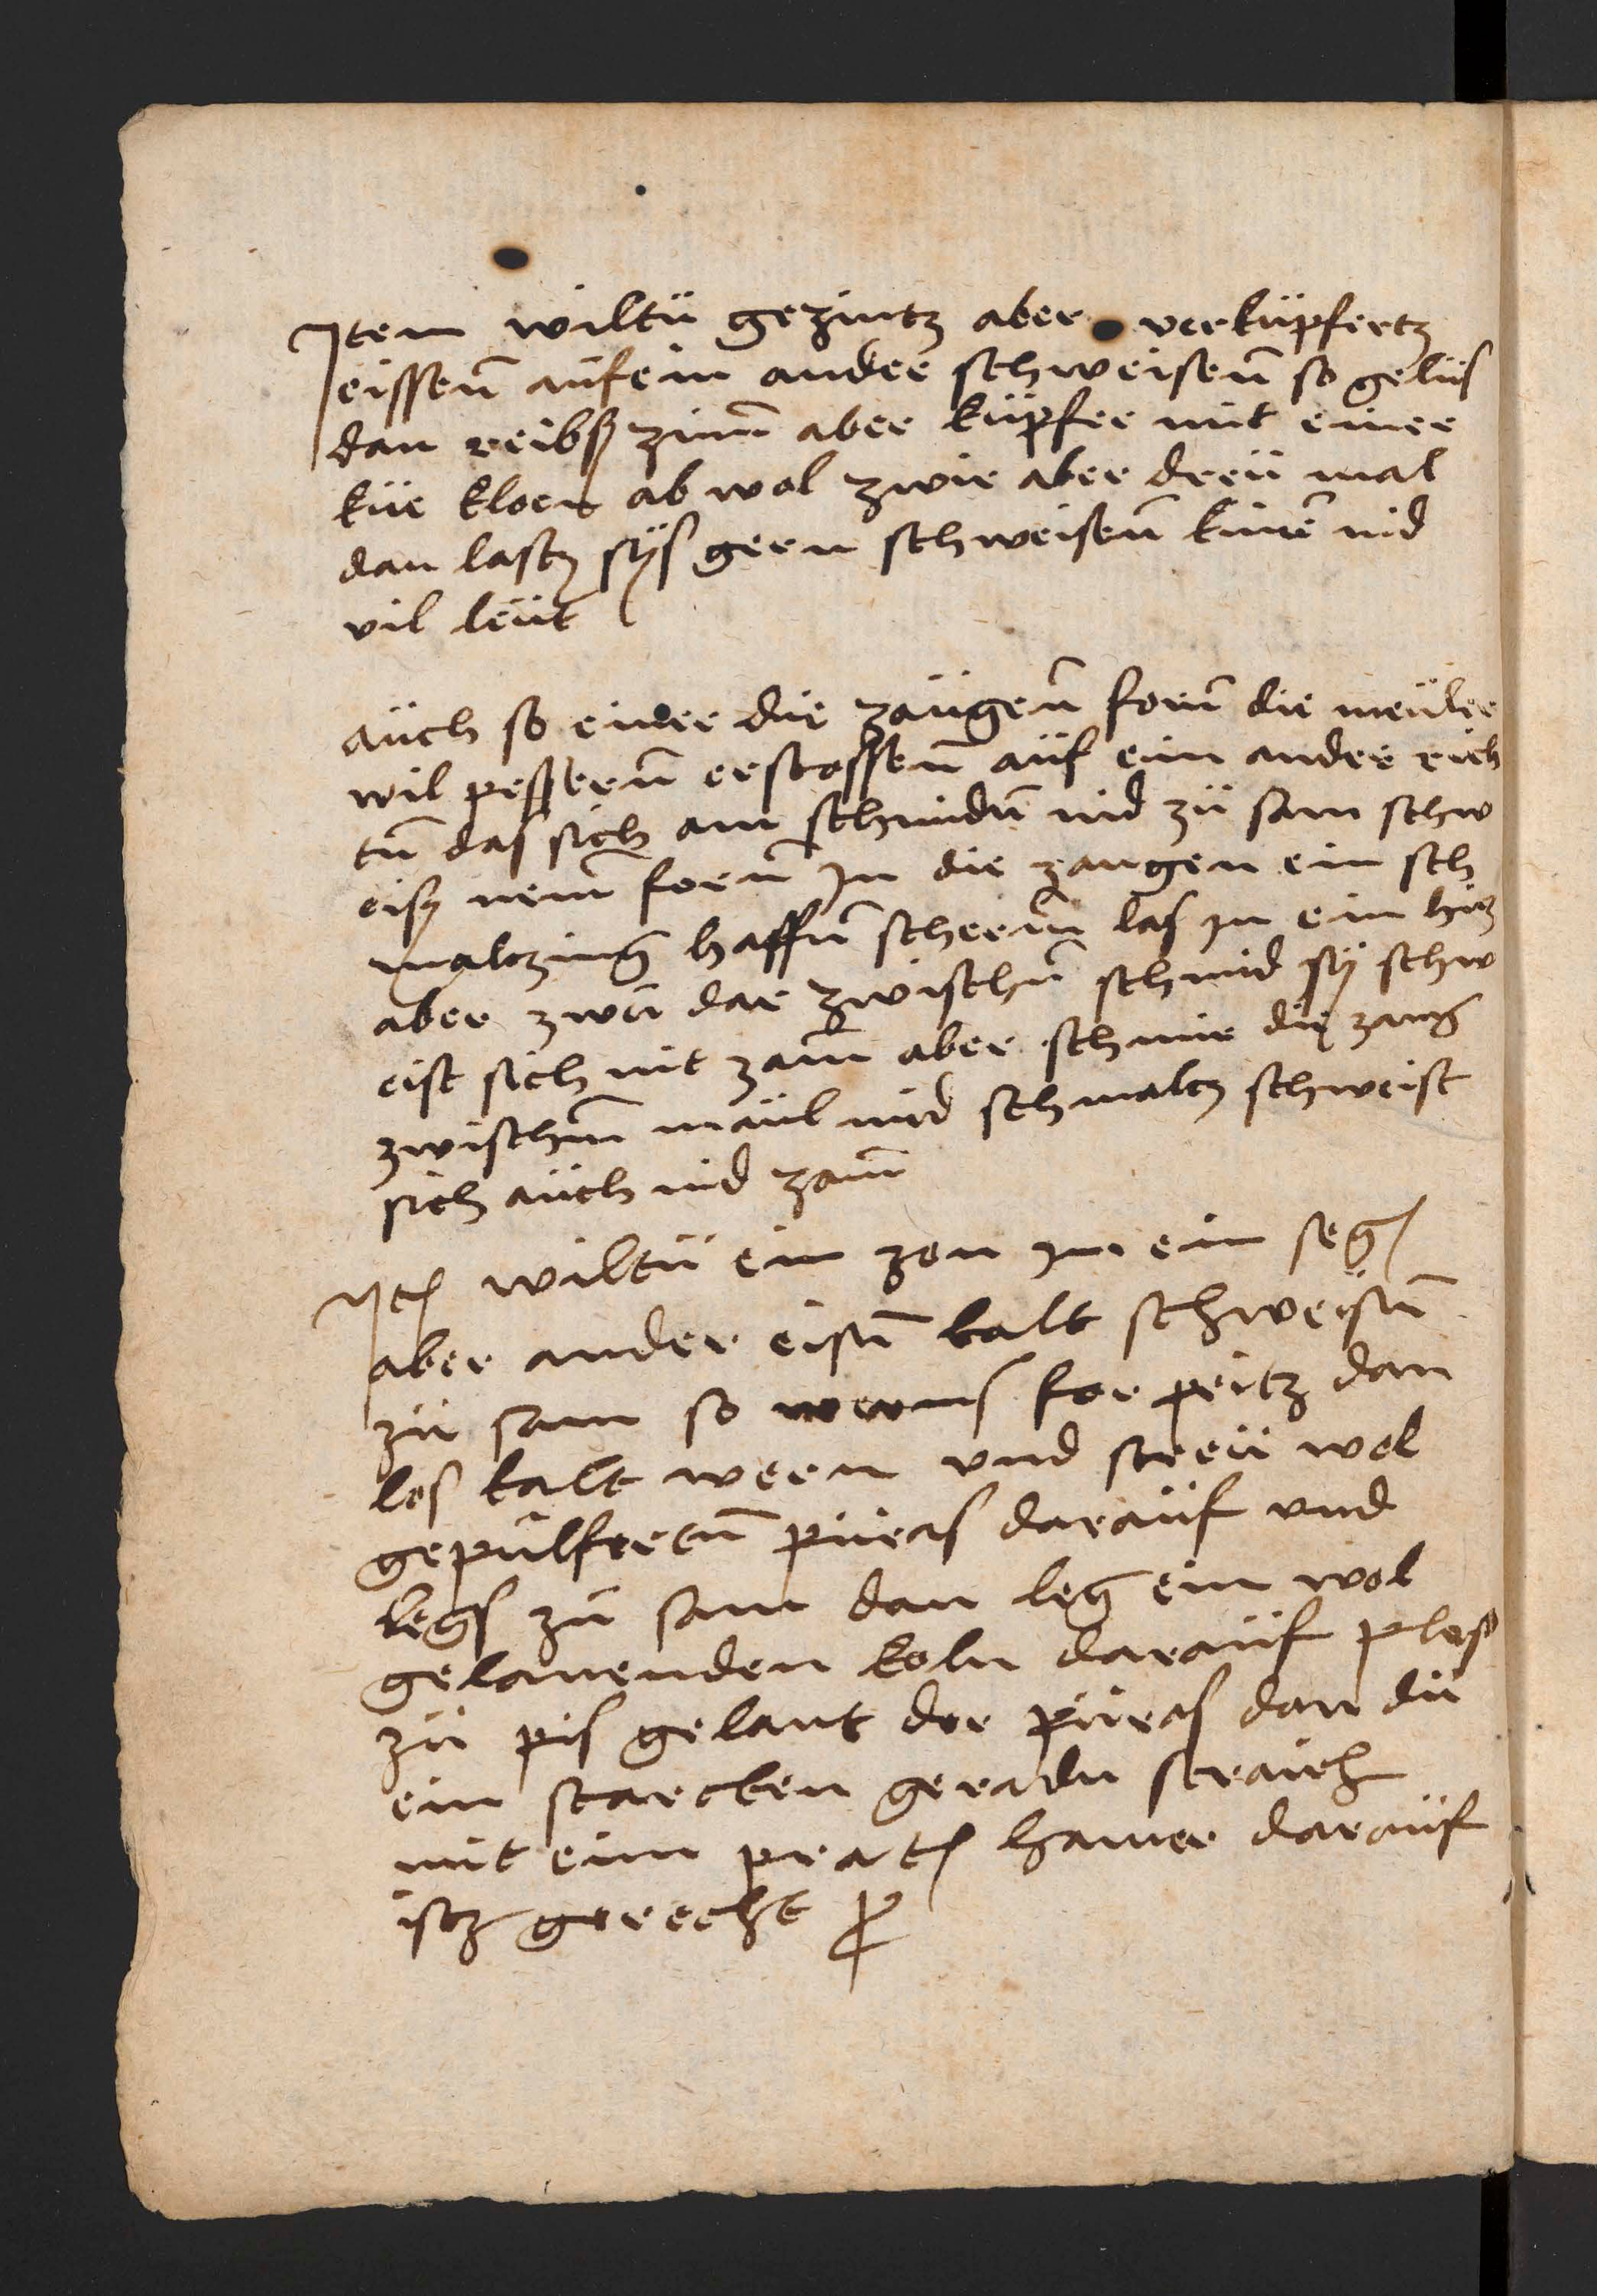 Item wiltü gezintz aber verküpfertz
eissen̄ aüf ein ander schweisen̄ so gelüs
dan reibß zinn̄ aber küpfer mit einer
küe kloen ab wol zwie aber dreü mal
dan lastz syß geren schweisen̄ kinē nid
vil leüt
aüch so einer die zangen̄ forn̄ die meüler
wil pessern̄ erstossen̄ aüf ein ander rich
tn̄ das sich am schmidn̄ nid zü sam schw
eisz nem̄ forn̄ In die zangen ein sch
malzing haffn̄ scherm̄ las in ein hitz
aber zwn̄ dar zwischn̄ schmid sy schw
eist sich nit zam̄ aber schmir die zang
zwischm̄ maül mid schmaltz schweist
sich aüch nid zam̄
Itē wiltü ein zen in ein seg
aber ander eisn̄ kalt schweisn̄
zü sam so werms for peitz dan
los kalt weren vnd streü wol
gepülfertn̄ püras daraüf vnd
legs zü sam dan leg ein wol
gelauenden koln daraüf plas
zü pis gelaut der püras dan dü
ein starcken geradn straich
mit eim pratē hamer daraüf
istz gerecht